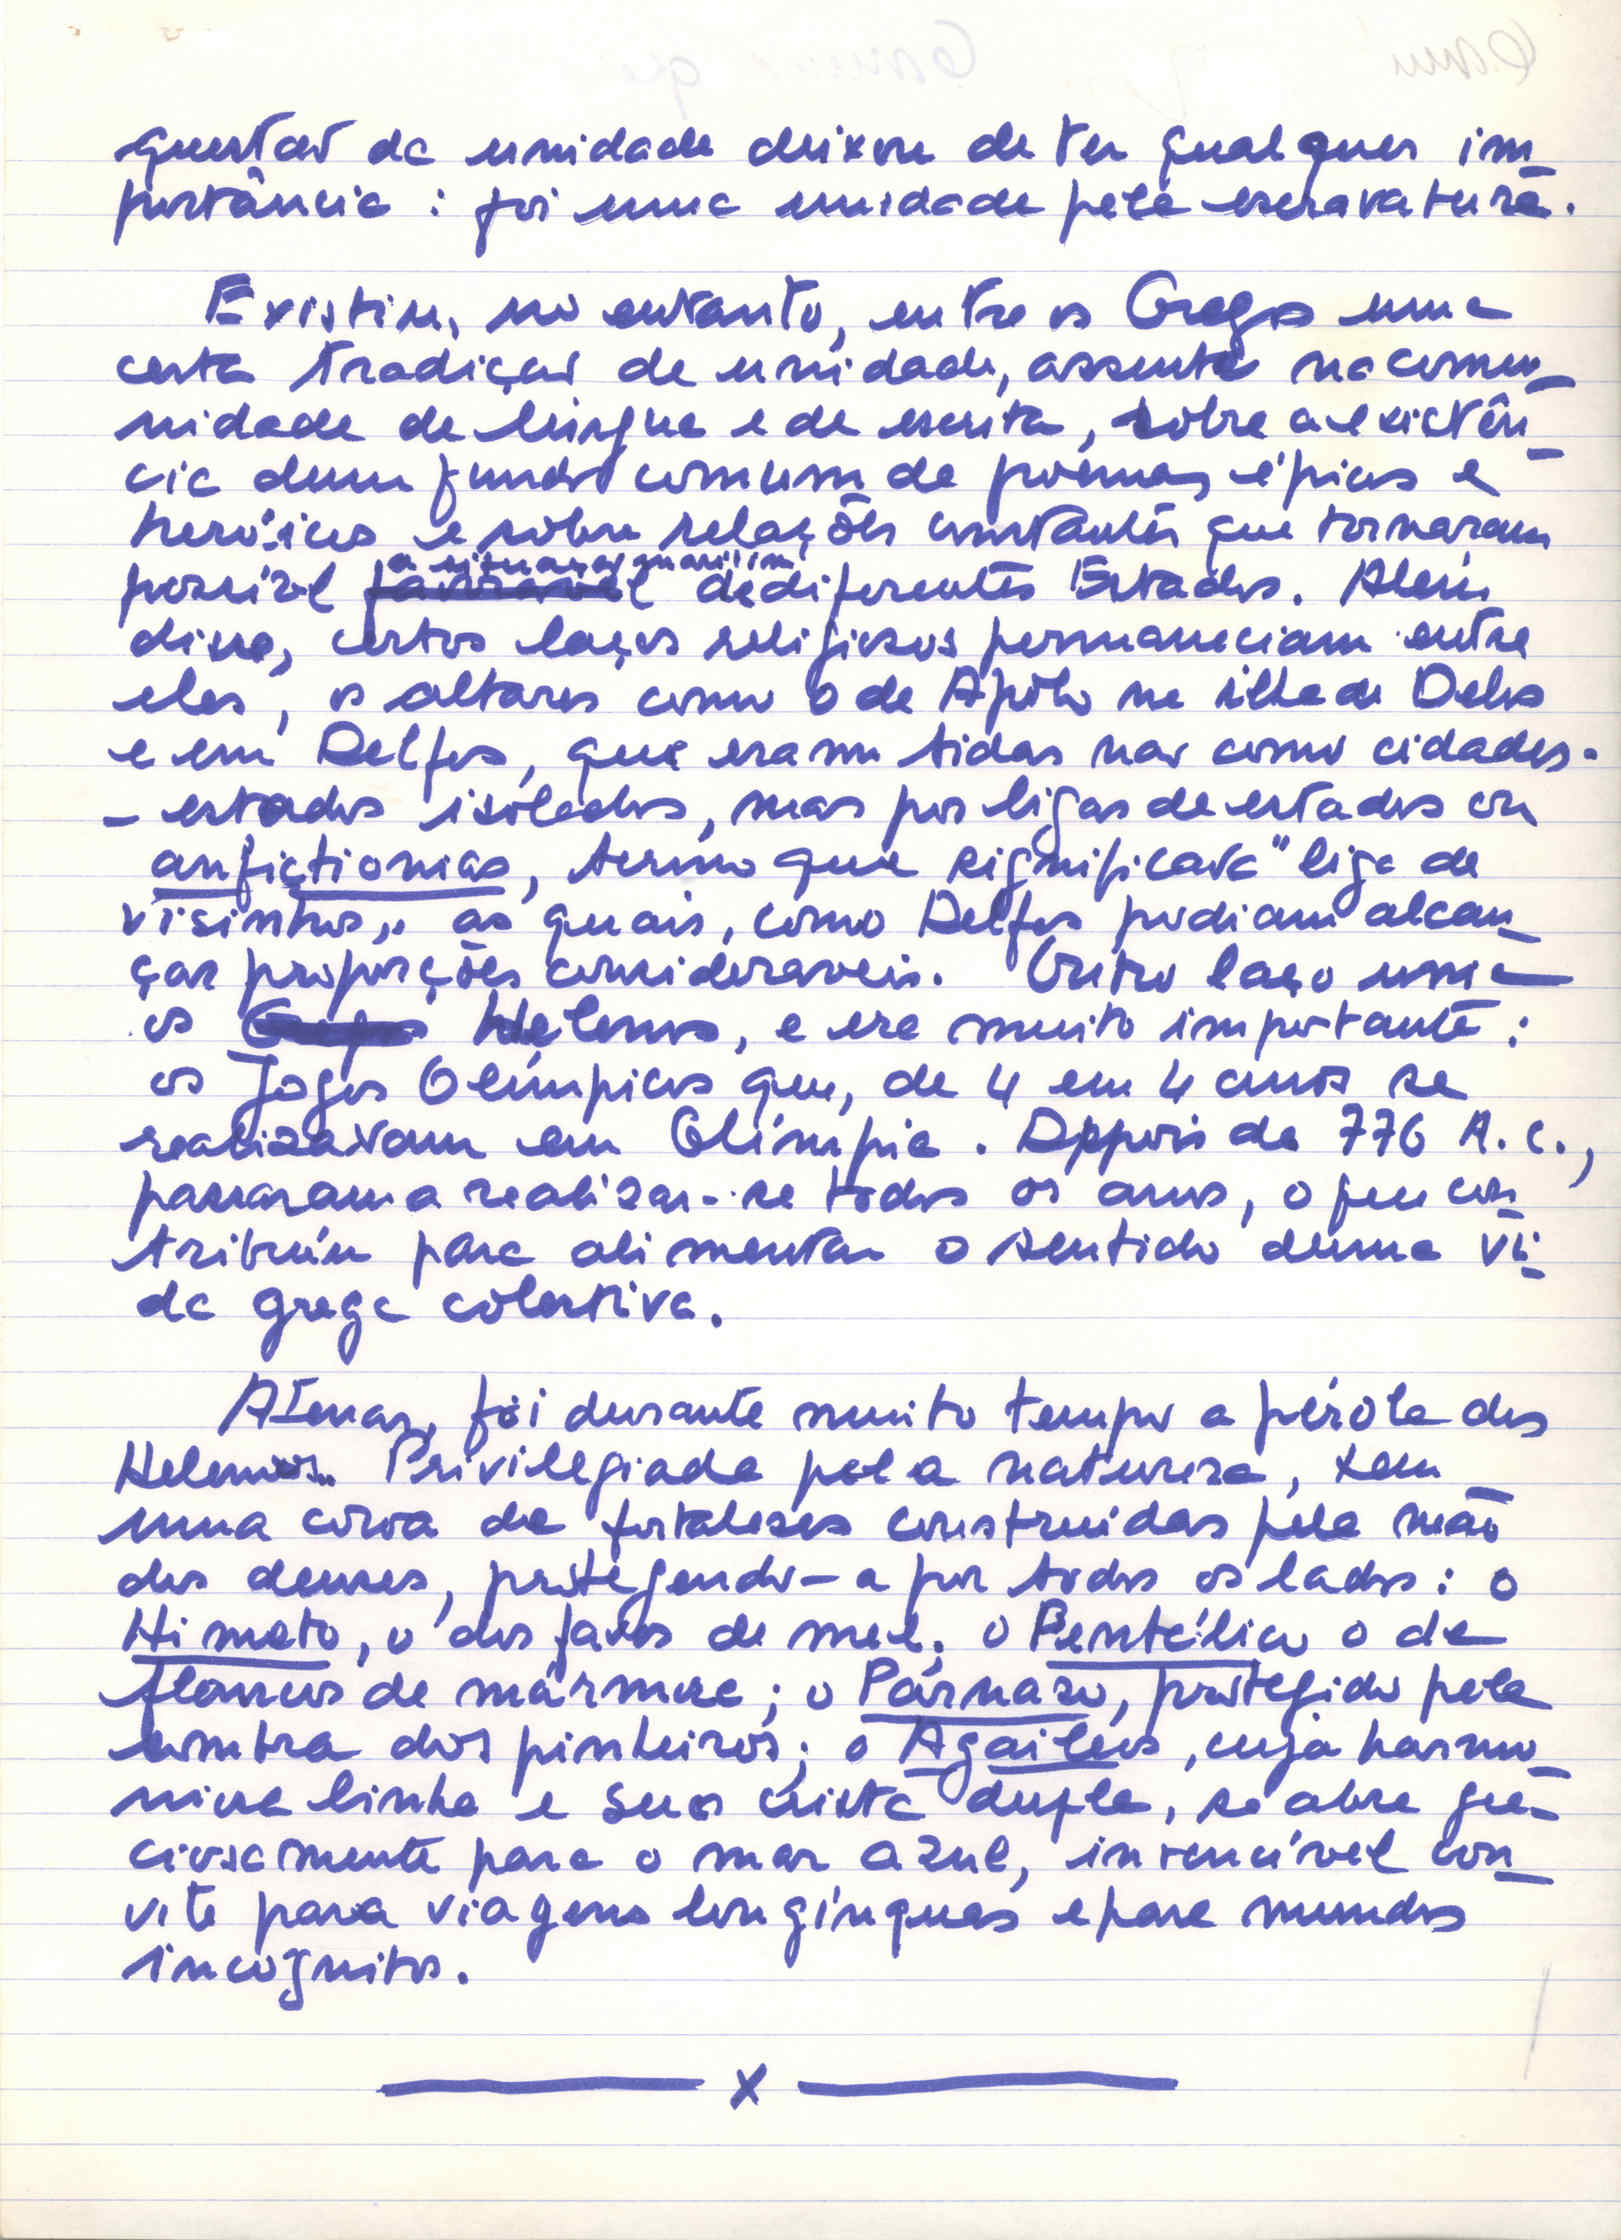 questão da unidade deixou de ter qualquer im-
portância: foi uma unidade pela escravatura.
Existiu, no entanto, entre os Gregos uma
certa tradição de unidade, assente na comu-
nidade de língua e de escrita, sobre a existên-
cia dum fundo comum de poemas épicos e
heróicos e sobre relações constantes que tornaram
possível a situação marítima de diferentes Estados. Além
disso, certos laços religiosos permaneciam entre
eles, os altares como o de Apolo na ilha de Delos
e em Delfos, que eram tidas não como cidades-
-estados isolados, mas por ligas de estados ou
anfictionias, termo que significava "liga de
visinhos", as quais, como Delfos podiam alcan-
çar proporções consideraveis. Outro laço unia
os Helenos, e era muito importante:
os Jogos Olímpicos que, de 4 em 4 anos se
realizavam em Olímpia. Depois de 776 A.C.,
passaram a realizar-se todos os anos, o que con-
tribuiu para alimentar o sentido duma vi-
da grega colectiva.
Atenas, foi durante muito tempo a pérola dos
Helenos. Privilegiada pela natureza, tem
uma coroa de fortalezas construidas pela mão
dos deuses, protegendo-a por todos os lados: o
Himeto, o dos favos de mel; o Pentélico o de
flancos de mármore; o Párnaso, protegido pela
sombra dos pinheiros; o Agaileos, cuja harmo-
niosa linha e sua crista dupla, se abre gra-
ciosamente para o mar azul, invencível con-
vite para viagens longínquas e para mundos
incognitos.
x